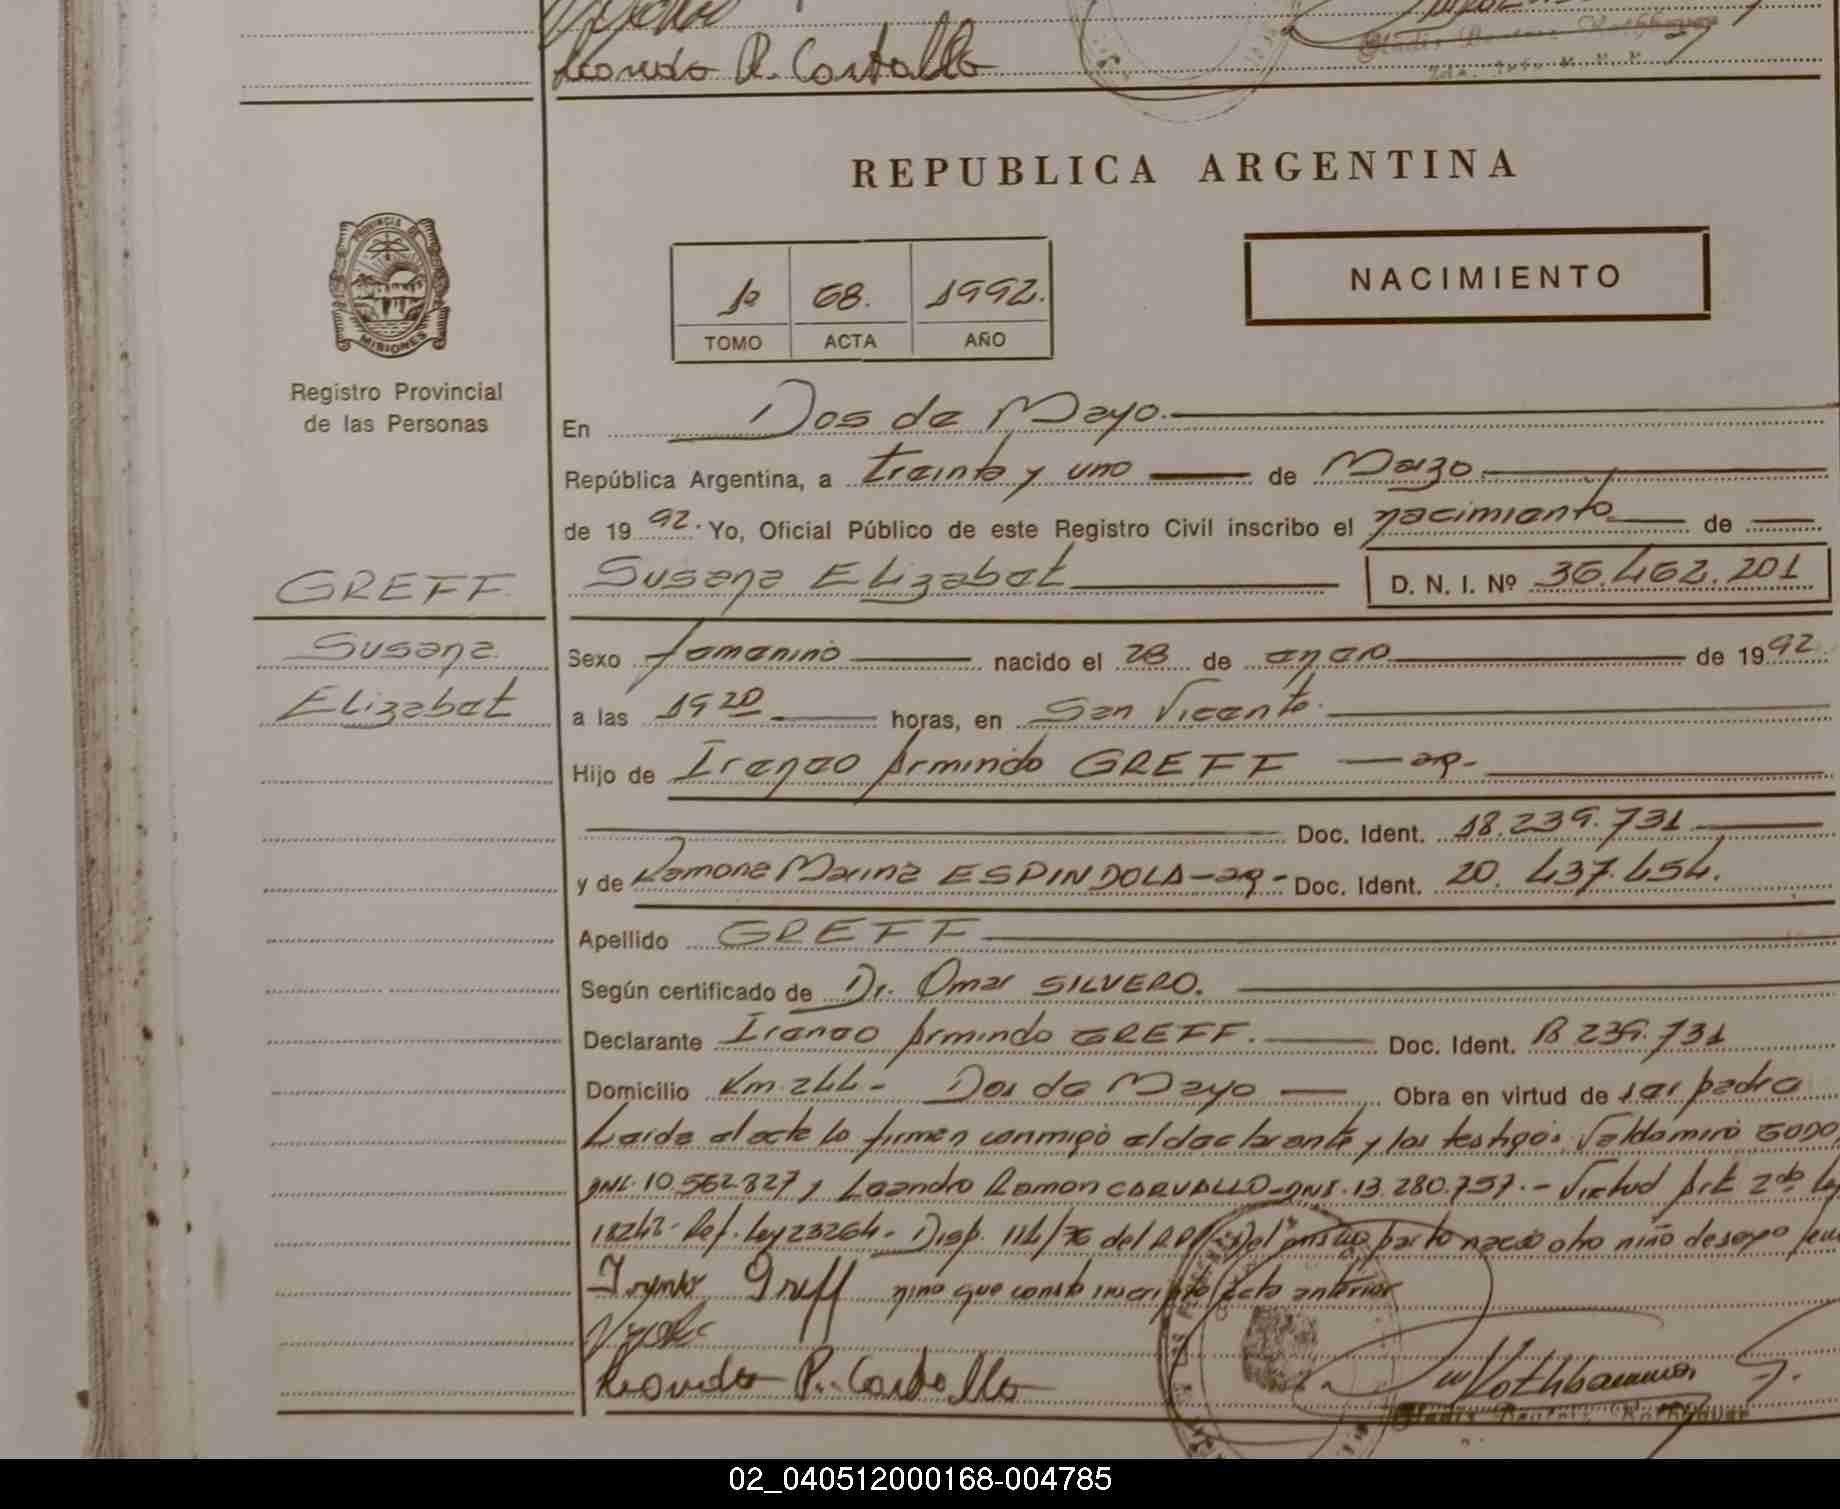 Leandro R. Carvallo
REPUBLICA ARGENTINA
PROVINCIA DE
MISIONES
1º 68. 1992.
TOMO ACTA AÑO
NACIMIENTO
Registro Provincial
de las Personas
En Dos de Mayo.
República Argentina, a treinta y uno de Marzo
de 1992. Yo, Oficial Público de este Registro Civil inscribo el nacimiento de
GREFF Susana Elizabet D. N. I. Nº 36.462.201
Susana Sexo femenino nacido el 28 de enero de 1992.
Elizabet a las 1920 horas, en San Vicente.
Hijo de Ireneo Armindo GREFF — ar-
Doc. Ident. 18.239.731
y de Ramona Marina ESPINDOLA-ar- Doc. Ident. 20.437.454.
Apellido GREFF
Según certificado de Dr. Omar SILVERO.
Declarante Ireneo Armindo GREFF. Doc. Ident. 18.239.731
Domicilio Km.244- Dos de Mayo Obra en virtud de ser padre
Leída el acta la firman conmigo el declarante y los testigos: Valdomiro GODO
DNI.10.562.827 y Leandro Ramon CARVALLO-DNI.13.280.757.- Virtud Art 2do Ley
18248- Ref. Ley 23264- Disp. 114/76 del mismo parto nació otro niño de sexo
Ireneo Greff niño que consta inscripto acta anterior
Leandro R. Carvallo
02_040512000168-004785